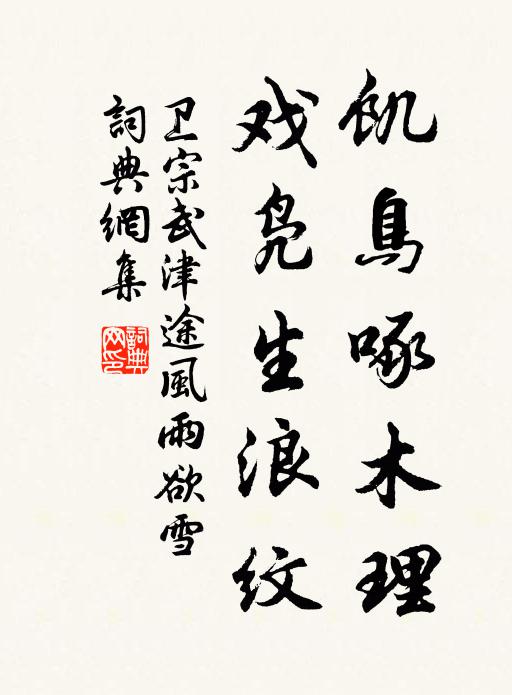 飢鳥啄木理
戏凫生浪纹
卫宗武津途風雨欲雪
詞典網集
詞典网印